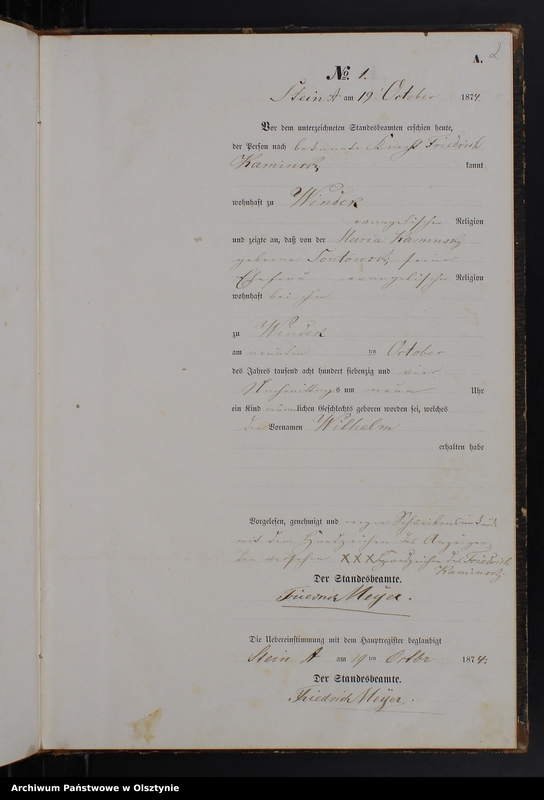 A. 2
No. 1.
Stein A am 19 October 1874.
Vor dem unterzeichneten Standesbeamten erschien heute,
der Person nach bekannte Knecht Friedrich
Kaminsky kannt
wohnhaft zu Windek
evangelischer Religion
und zeigte an, daß von der Maria Kaminsky
geborene seiner
Ehefrau evangelischer Religion
wohnhaft bei ihm
zu Windek
am neunten ten October
des Jahres tausend acht hundert siebenzig und vier
Nachmittags um neun Uhr
ein Kind männlichen Geschlechts geboren worden sei, welches
den Vornamen Wilhelm
erhalten habe
Vorgelesen, genehmigt und wegen
mit dem Handzeichen des
versehen XXX Handzeichen des Friedrich
Kaminsky
Der Standesbeamte.
Friedrich Meyer.
Die Uebereinstimmung mit dem Hauptregister beglaubigt
Stein A am 19 ten Octbr 1874.
Der Standesbeamte.
Friedrich Meyer.
Archiwum Państwowe w Olsztynie